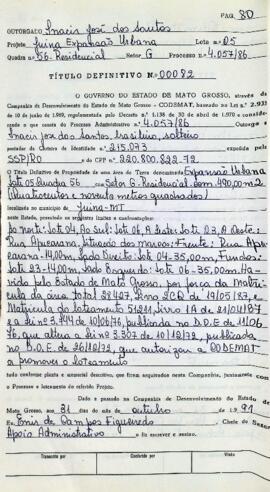 PAG. 80
OUTORGADO Inacir José dos Santos
Projeto Juina Expansão Urbana Lote nº 05
Quadra nº 56. Residencial Setor G Processo nº 4.057/86
TÍTULO DEFINITIVO N.º 00082
O GOVERNO DO ESTADO DE MATO GROSSO, através da
Companhia de Desenvolvimento do Estado de Mato Grosso - CODEMAT, baseado na Lei N.º 2.931
de 10 de junho de 1.969, regulamentada pelo Decreto N.º 1.138 de 30 de abril de 1970 e conside-
rando o que consta do Processo Administrativo n.º 4.057/86 Outorga a
Inacir José dos Santos, brasileiro, solteiro
portador da Cédula de Identidade n.º 215.073 expedida pela
SSP/RO e do CPF n.º 220.800.822-72
O Título Definitivo de Propriedade de uma área de Terra denominada Expansão Urbana
Lote 05 Quadra 56 com Setor G. Residencial com 490,00 m2
(Quatrocentos e noventa metros quadrados)
localizada no município de Juina-MT
neste Estado, possuindo os seguintes limites e confrontações:
Ao Norte: Lote 04, Ao Sul: Lote 06, A Leste: Lote 23, A Oeste:
Rua Apucarana, Situação dos marcos: Frente: Rua Apu-
carana-14,00m. Lado Direito: Lote 04-35,00m, Fundos:
Lote 23-14,00m, Lado Esquerdo: Lote 06-35,00m. Ha-
vida pelo Estado de Mato Grosso, por força da Matrí-
cula da área total 38427, Livro 2CQ de 19/05/87, e
Matrícula do loteamento 51211, Livro 1A de 21/01/87
e a Lei nº 3.744 de 10/06/76, publicada no D.O.E de 11/06
76, que altera a Lei nº 3.307 de 10/12/72, publicada
no D.O.E. de 26/12/72, que autorizou a CODEMAT
a promover o loteamento
tudo conforme planta e memorial descritivo, que ficam arquivados nesta Companhia, juntamente com
o Processo e loteamento do referido Projeto.
Dado e passado na Companhia de Desenvolvimento do Estado de
Mato Grosso, aos 31 dias do mês de outubro de 1.991
Eu Enis de Campos Figueiredo Chefe do
Apoio Administrativo o fiz escrever e assino.
Transcrito por
Conferido por
Visto